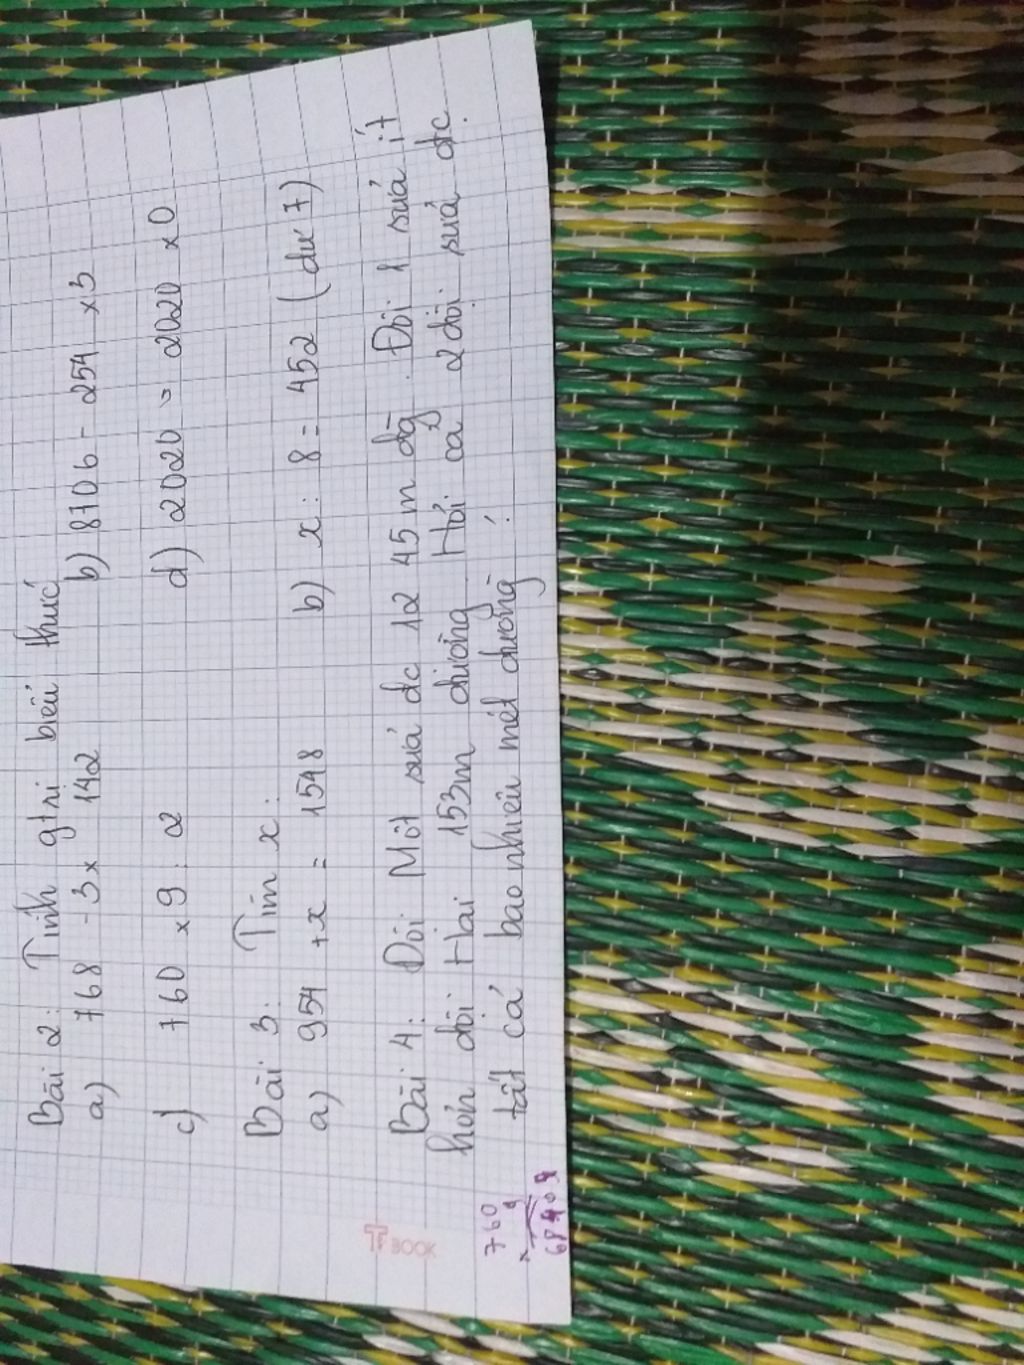 Bài 2: Tính gtri biểu thức
a) 768 - 3 x 142 b) 8706 - 254 x 3
c) 760 x 9 : 2 d) 2020 : 2020 x 0
Bài 3: Tìm x:
a) 954 + x = 1548 b) x : 8 = 452 (dư 7)
Bài 4: Đội Một sửa dc 12 45 m đg. Đội 1 sửa ít
hơn đội Hai 153m đường. Hỏi cả 2 đội sửa dc
tất cả bao nhiêu mét đường?
TBOOK
760
x 9